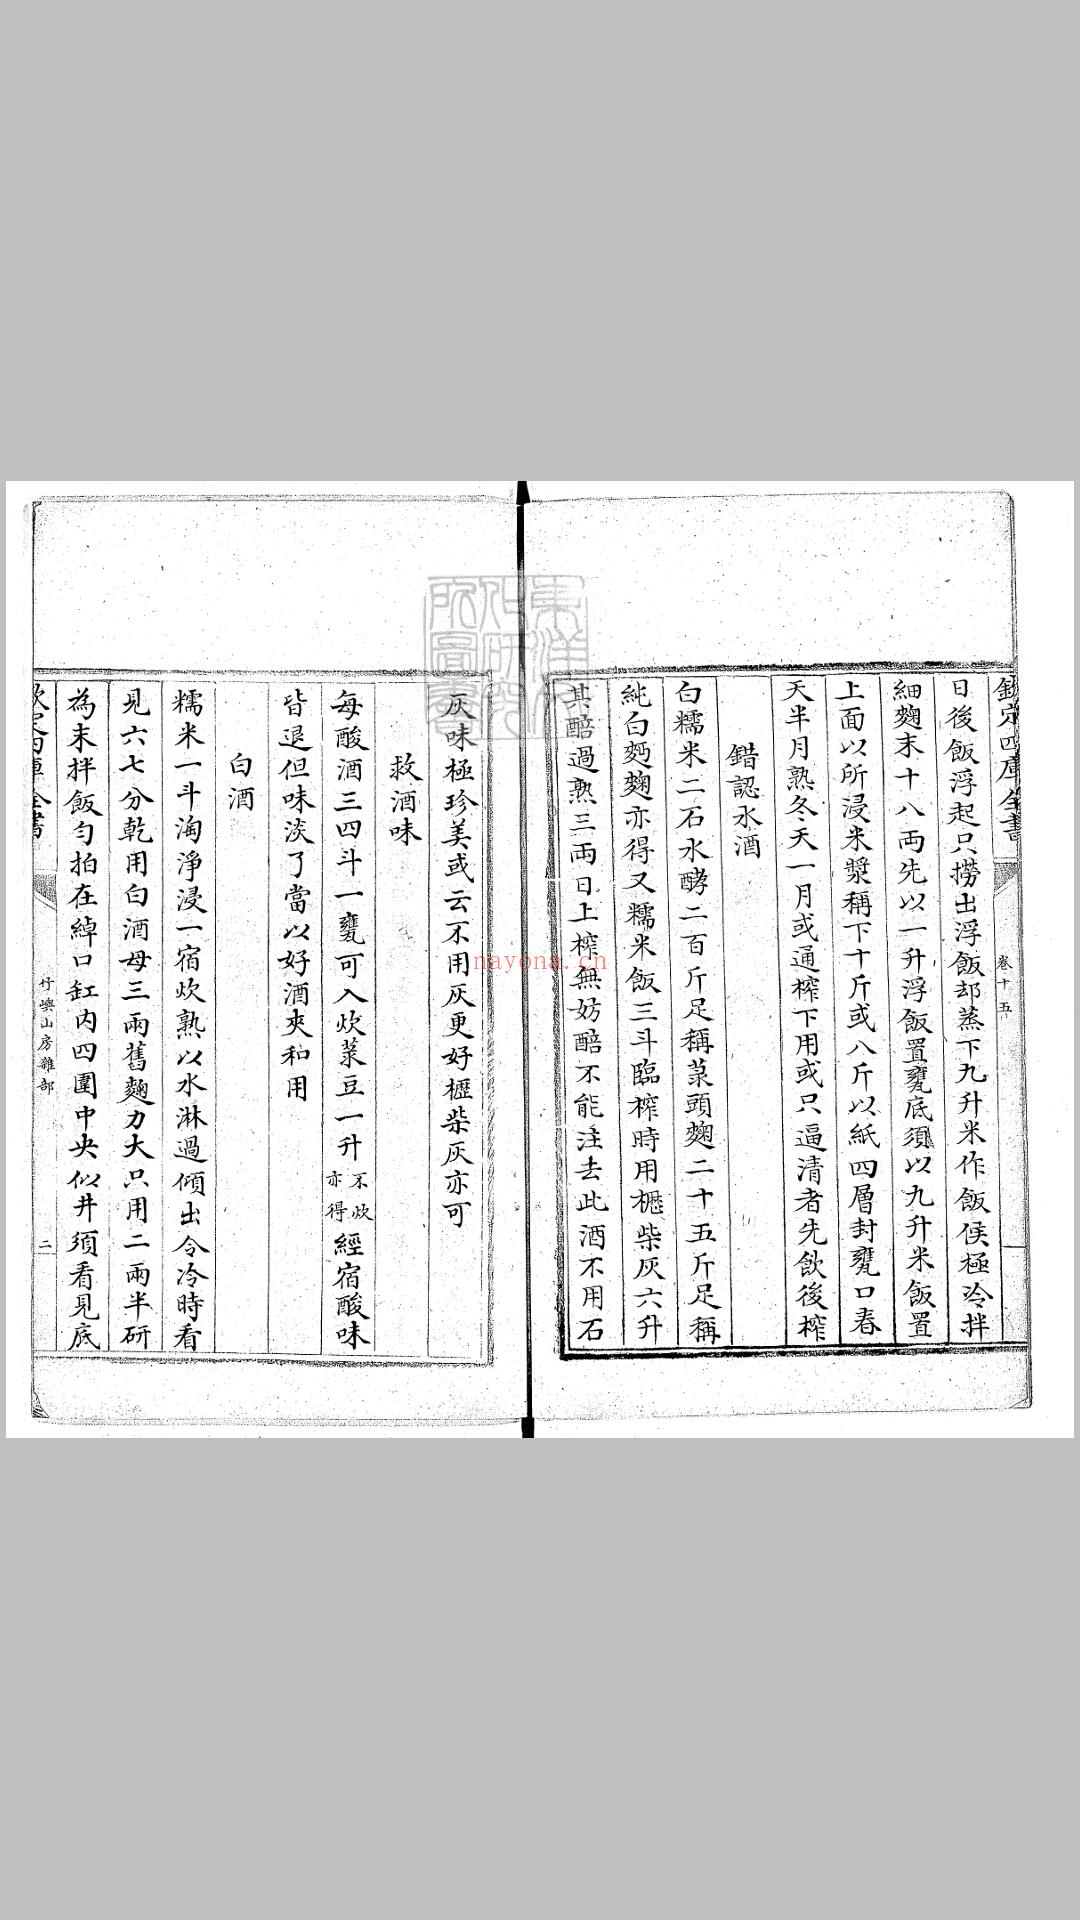 欽定四庫全書
卷十五
日後飯浮起只撈出浮飯却蒸下九升米作飯侯極冷拌
細麴末十八両先以一升浮飯置甕底須以九升米飯置
上面以所浸米漿稱下十斤或八斤以紙四層封甕口春
天半月熟冬天一月或通榨下用或只逼清者先飲後榨
錯認水酒
白糯米二石水酵二百斤足稱菉頭麴二十五斤足稱
純白麪麴亦得又糯米飯三斗臨榨時用櫪柴灰六升
其醅過熟三両日上榨無妨醅不能注去此酒不用石
灰味極珍美或云不用灰更好櫪柴灰亦可
救酒味
每酸酒三四斗一甕可入炊菉豆一升不炊亦得經宿酸味
皆退但味淡了當以好酒夾和用
白酒
糯米一斗淘淨浸一宿炊熟以水淋過傾出令冷時看
見六七分乾用白酒母三兩舊麴力大只用二兩半研
為末拌飯勻拍在綽口缸内四圍中央似井須看見底
欽定四庫全書
竹嶼山房雜部
二
nayona.cn